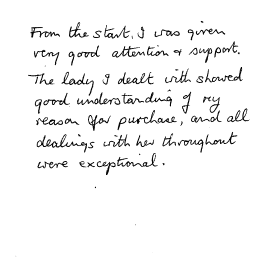 From the start, I was given
very good attention & support.
The lady I dealt with showed
good understanding of my
reason for purchase, and all
dealings with her throughout
were exceptional.